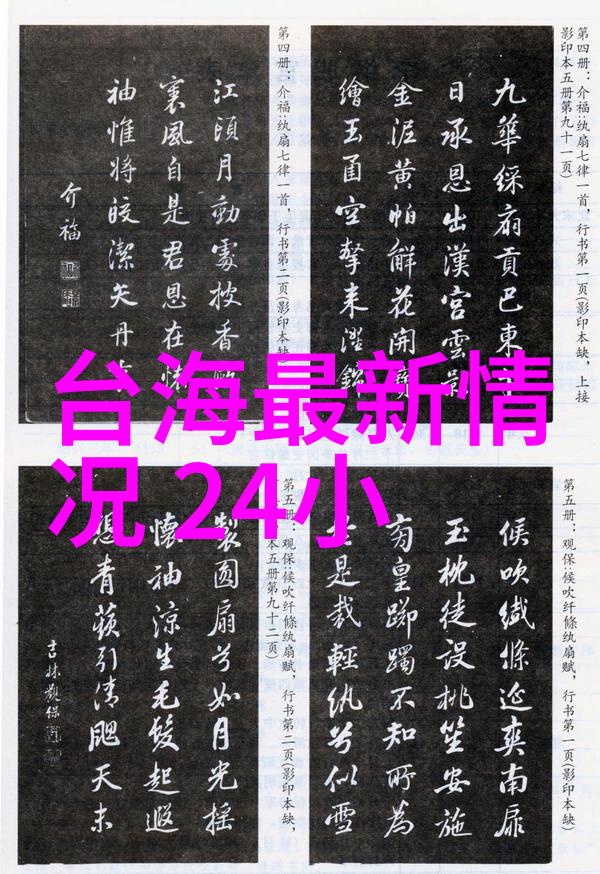 台海最新情
况 24小
第四册：介福:纨扇七律一首，行书第一页(影印本缺，上接
影印本五册第九十一页)
九華綵扇貢巴東
日承恩出漢宮雲影
金泥黃帕鮮花開寶
繪玉函空擎来
第四册：介福:纨扇七律一首，行书第二页(影印本缺)
江頭月動處披香殿
裏風自是君恩在懷
袖惟將皎潔矢丹
介福
第五册：观保:候吹纤條纨扇赋，行书第一页(影印本缺)
候吹纎條延爽南扉
玉枕徒設桃笙安施
有皇躑躅不知所為
是裁輕紈兮似雪
第五册：观保:候吹纤條纨扇赋，行书第二页(影印本缺，
本五册第九十二页)
製圓扇兮如月光搖
懷袖涼生毛髮起遐
想青蘋引清颸天末
吉林觀保